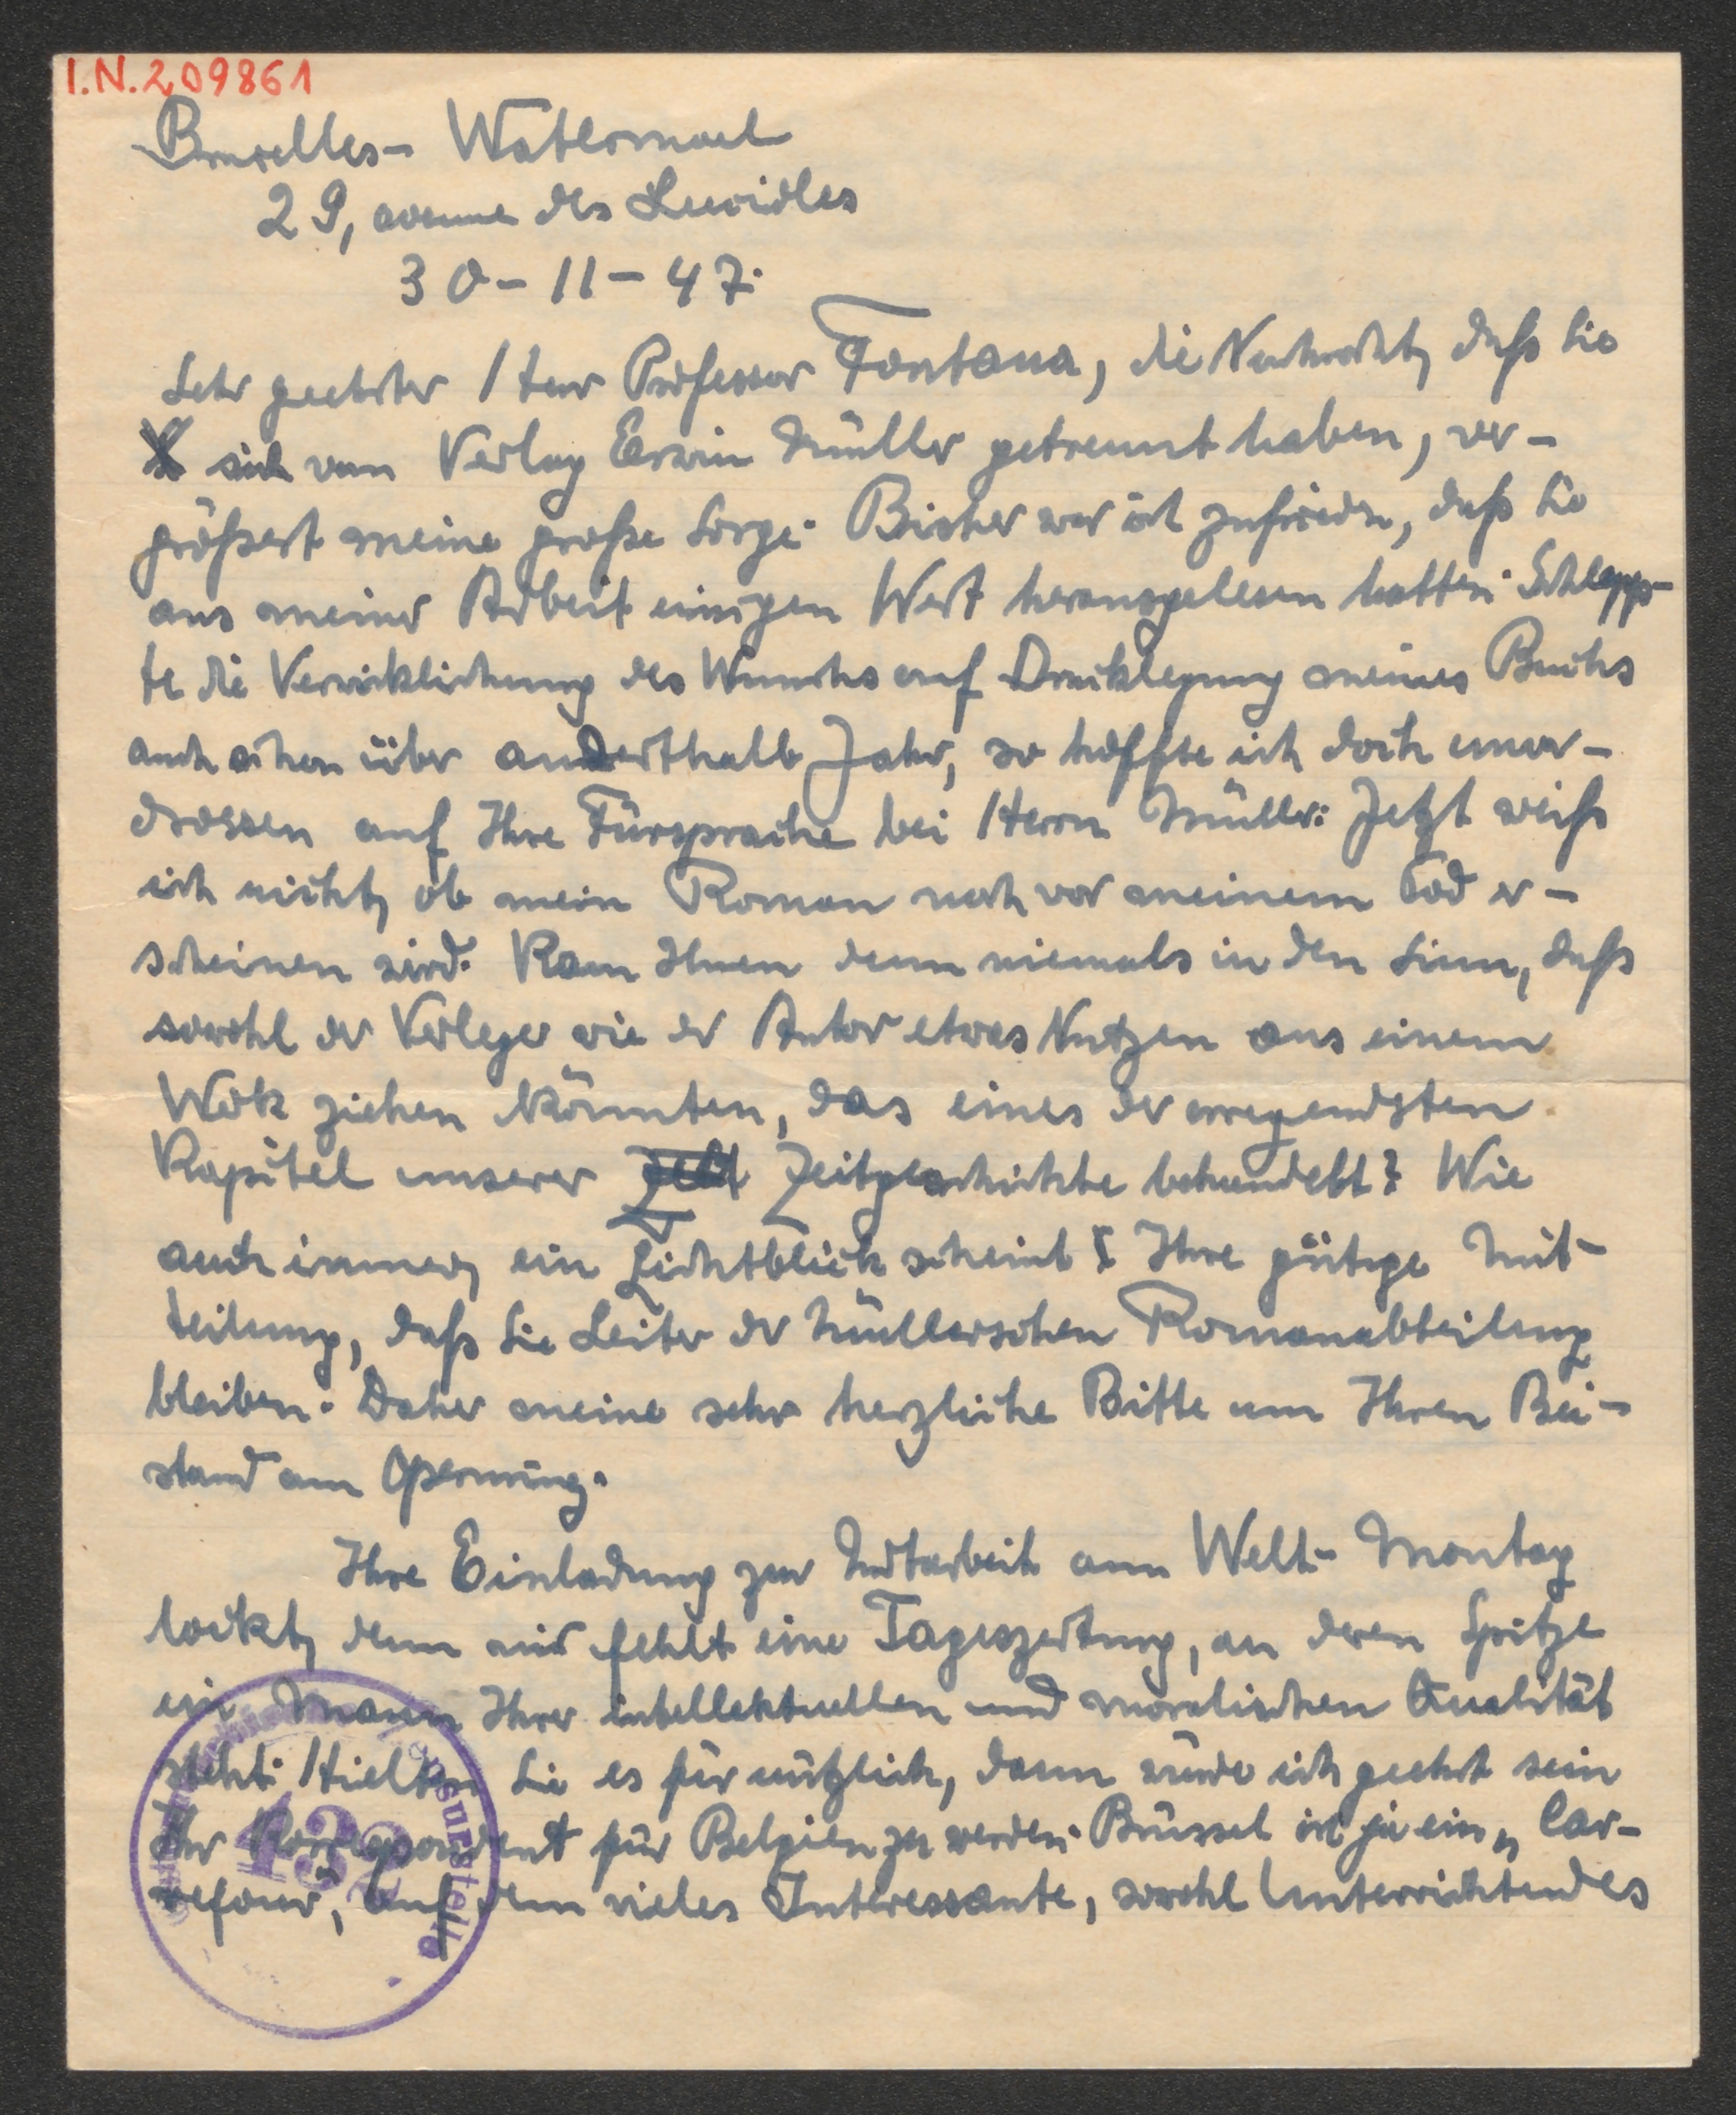 I.N. 209861
Bruxelles - Watermael
29, avenue des
30-11-47.
Sehr geehrter Herr Professor Fontana, die Nachricht, daß Sie
sich vom Verlag Erwin Müller getrennt haben, ver-
größert meine große Sorge. Bisher war ich zufrieden, daß Sie
aus meiner Arbeit einigen Wert herausgelesen hatten. Schlepp-
te die Verwirklichung des Wunschs auf Drucklegung meines Buchs
auch schon über anderthalb Jahr, so hoffte ich doch unver-
drossen auf Ihre Fürsprache bei Herrn Müller. Jetzt weiß
ich nicht, ob mein Roman noch vor meinem Tod er-
scheinen wird. Kam Ihnen denn niemals in den Sinn, daß
sowohl der Verleger wie der Autor etwas Nutzen aus einem
Werk ziehen könnten, das eines der erregendsten
Kapitel unserer Zeitgeschichte behandelt? Wie
auch immer, ein Lichtblick scheint Ihre gütige Mit-
teilung, daß Sie Leiter der Müllerschen Romanabteilung
bleiben. Daher meine sehr herzliche Bitte um Ihren Bei-
stand am Opernring.
Ihre Einladung zur Mitarbeit am Welt-Montag
lockt, denn mir fehlt eine Tageszeitung, an deren Spitze
ein Mann Ihrer intellektuellen und moralischen Qualität
steht. Hielten Sie es für nützlich, dann würde ich geehrt sein
Ihr Korrespondent für Belgien zu werden. Brüssel ist ja ein „Car-
refour“, auf dem vieles Interessante, sowohl Unterrichtendes
Zensurstelle
132